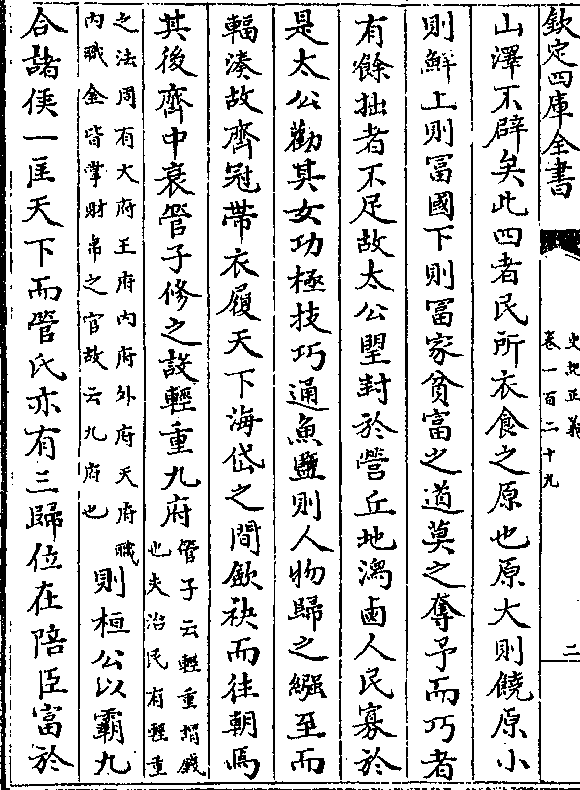 欽定四庫全書
史記正義
卷一百二十九
二
山澤不辟矣此四者民所衣食之原也原大則饒原小
則鮮上則冨國下則冨家貧富之道莫之奪予而巧者
有餘拙者不足故太公望封於營丘地潟鹵人民寡於
是太公勸其女功極技巧通魚鹽則人物歸之繦至而
輻湊故齊冠帶衣履天下海岱之間歛袂而往朝焉
其後齊中衰管子修之設輕重九府
管子云輕重謂錢
也夫治民有輕重
之法周有大府王府内府外府天府職
内職金皆掌財帛之官故云九府也
則桓公以霸九
合諸侯一匡天下而管氏亦有三歸位在陪臣富於